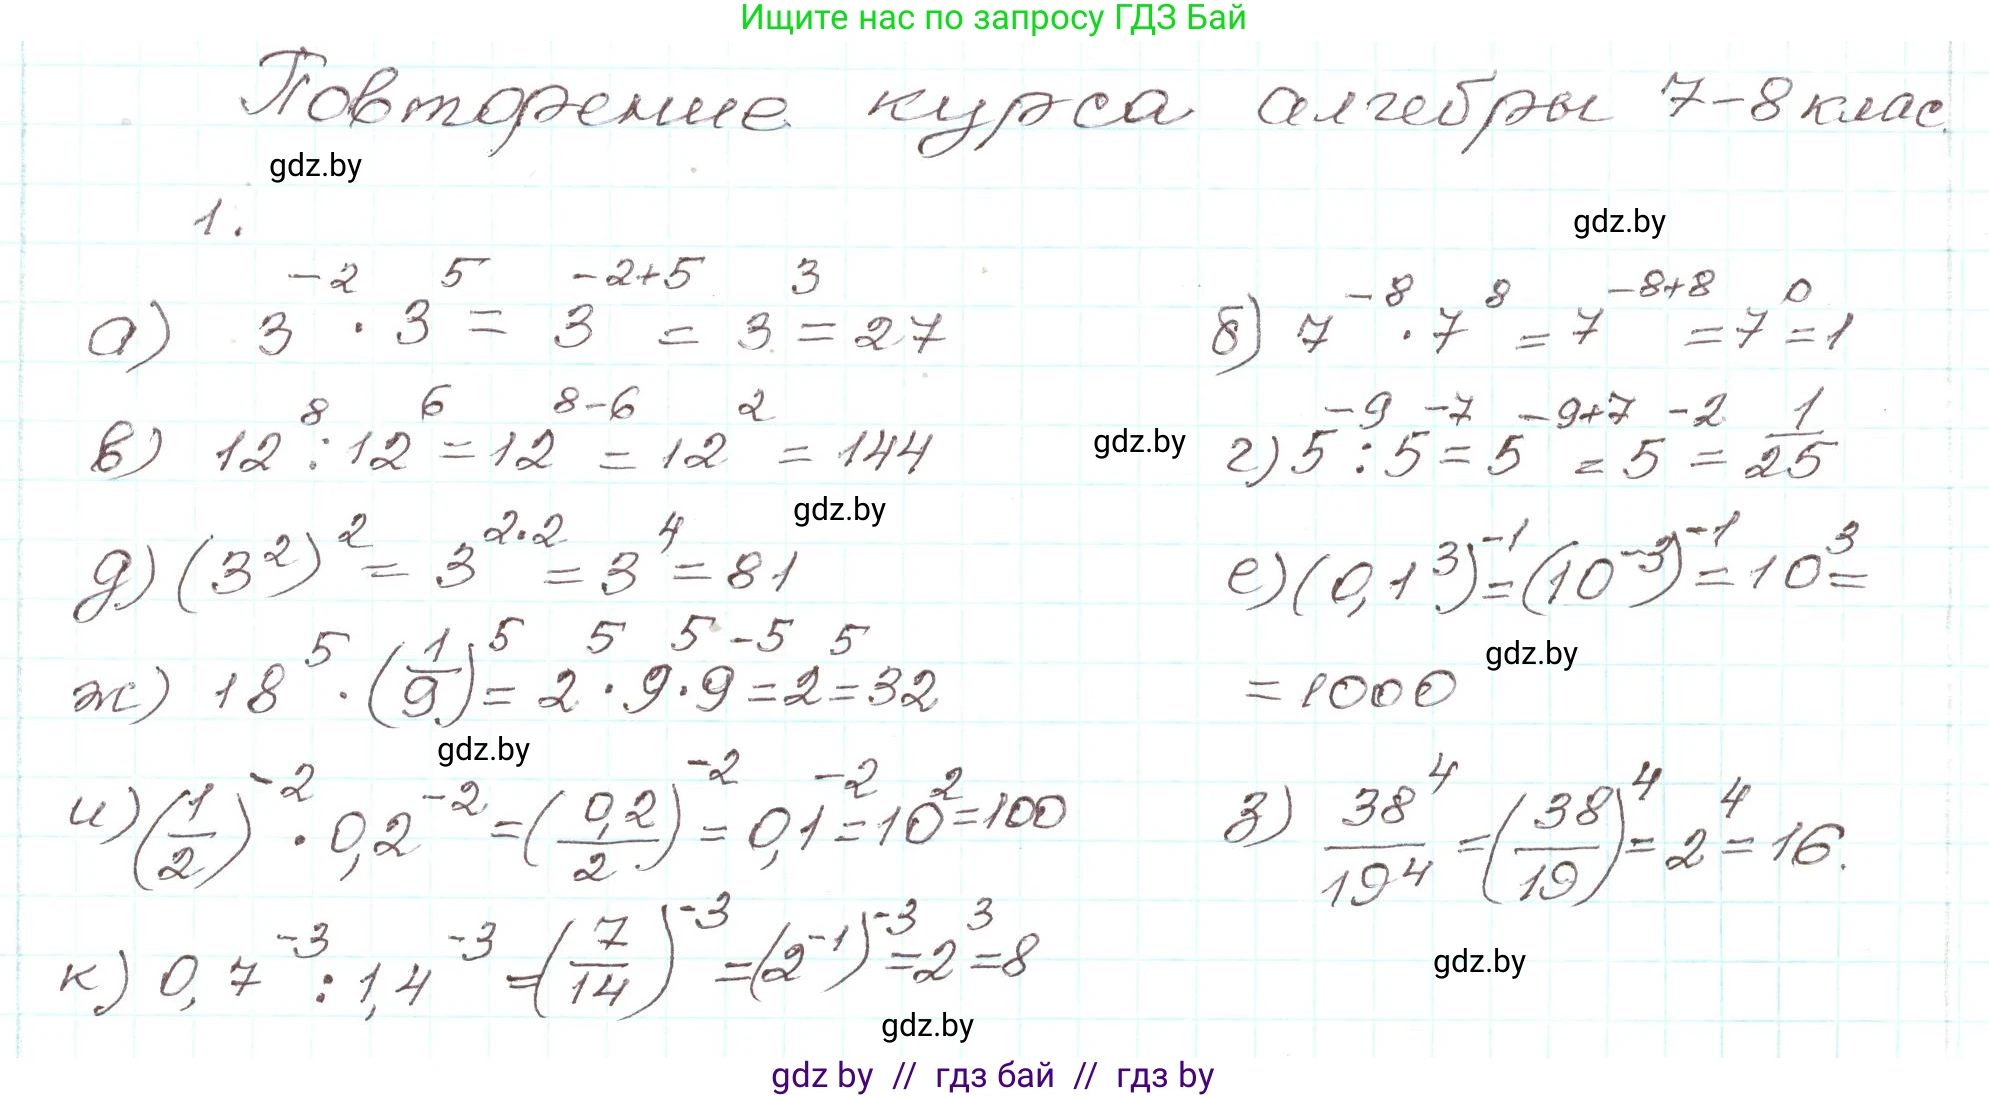 Ищите нас по запросу ГДЗ Бай
Повторение курса алгебры 7-8 клас.
gdz.by
1.
gdz.by
а) 3⁻² · 3⁵ = 3⁻²⁺⁵ = 3³ = 27
б) 7⁻⁸ · 7⁸ = 7⁻⁸⁺⁸ = 7⁰ = 1
в) 12⁸ : 12⁶ = 12⁸⁻⁶ = 12² = 144
gdz.by
г) 5⁻⁹ : 5⁻⁷ = 5⁻⁹⁺⁷ = 5⁻² = 1/25
gdz.by
д) (3²)² = 3²·² = 3⁴ = 81
е) (0,1³)⁻¹ = (10⁻³)⁻¹ = 10³ =
= 1000
gdz.by
ж) 18⁵ · (1/9)⁵ = 2⁵ · 9⁵ · 9⁻⁵ = 2⁵ = 32
gdz.by
и) (1/2)⁻² · 0,2⁻² = (0,2/2)⁻² = 0,1⁻² = 10² = 100
з) 38⁴/19⁴ = (38/19)⁴ = 2⁴ = 16.
к) 0,7⁻³ : 1,4⁻³ = (7/14)⁻³ = (2⁻¹)⁻³ = 2³ = 8
gdz.by
gdz.by
gdz by // гдз бай // гдз by